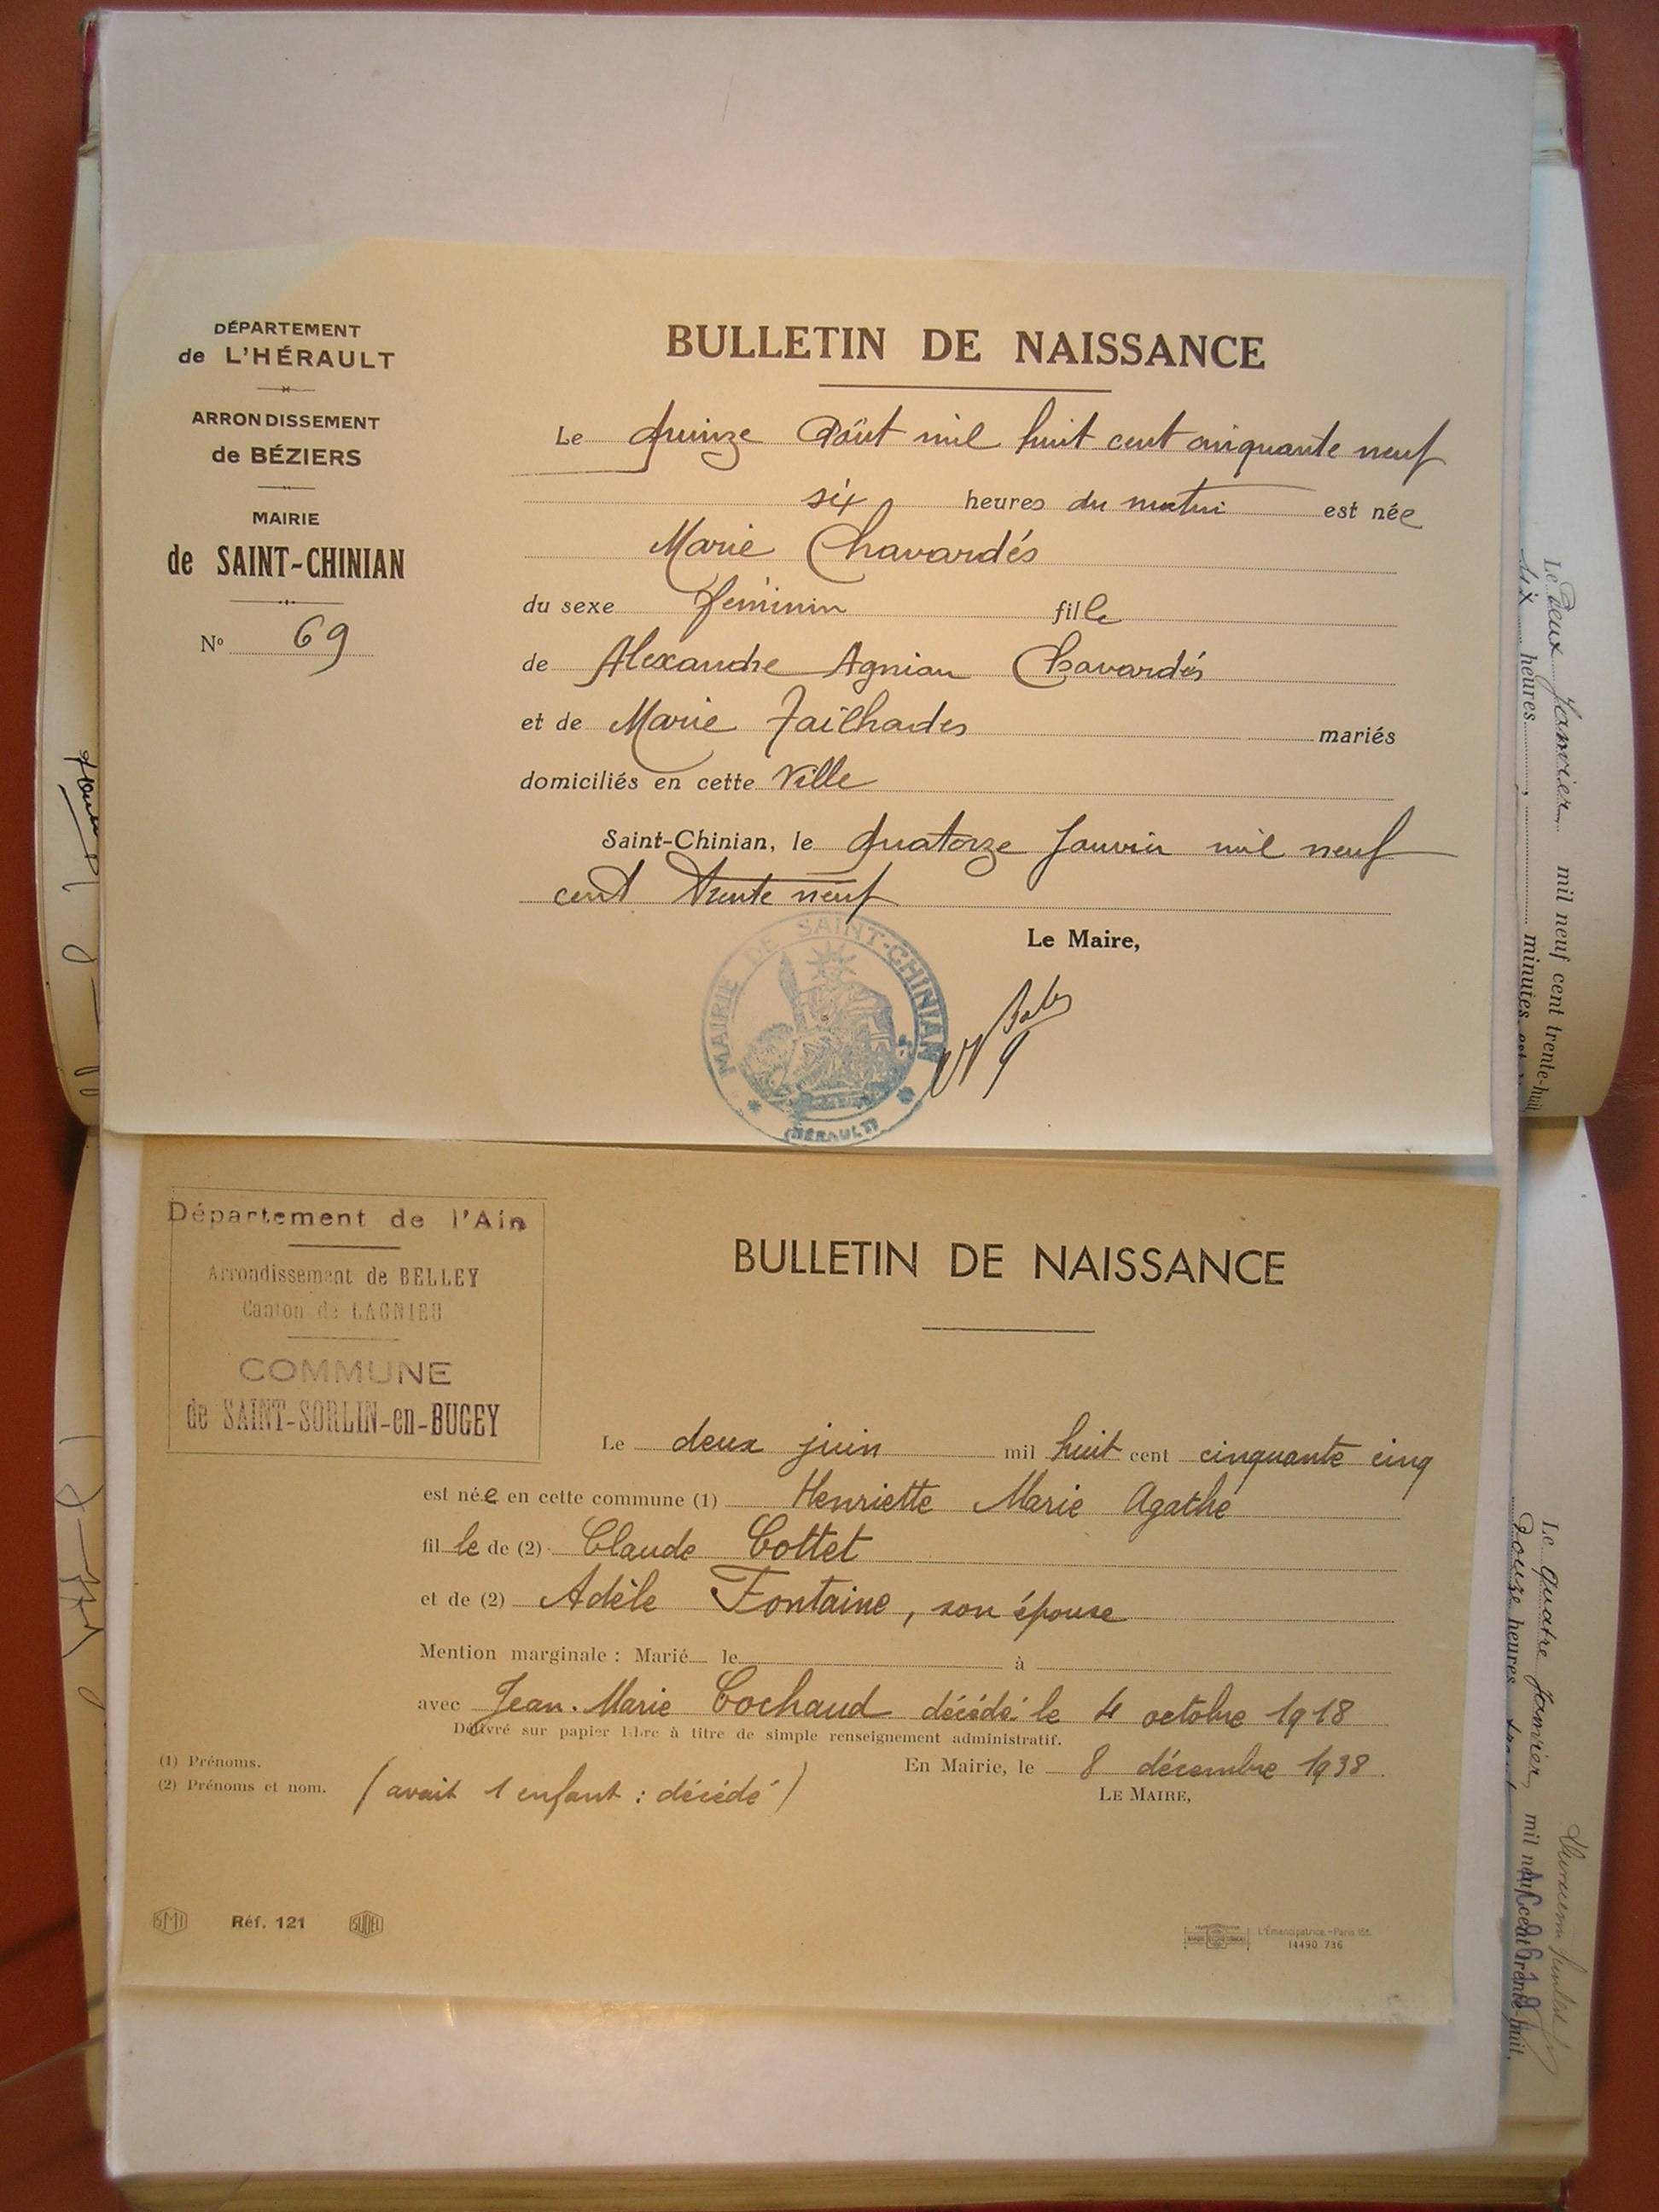 DÉPARTEMENT
de L'HÉRAULT
ARRONDISSEMENT
de BÉZIERS
MAIRIE
de SAINT-CHINIAN
No 69
BULLETIN DE NAISSANCE
Le quinze Août mil huit cent cinquante neuf
six heures du matin est née
Marie Chavardés
du sexe feminin fille
de Alexandre Agnian Chavardés
et de Marie Tailhades mariés
domiciliés en cette Ville
Saint-Chinian, le quatorze Janvier mil neuf
cent trente neuf
Le Maire,
MAIRIE DE SAINT-CHINIAN
(HÉRAULT)
Département de l'Ain
Arrondissement de BELLEY
Canton de LAGNIEU
COMMUNE
de SAINT-SORLIN-en-BUGEY
BULLETIN DE NAISSANCE
Le deux juin mil huit cent cinquante cinq
est née en cette commune (1) Henriette Marie Agathe
fille de (2) Claude Cottet
et de (2) Adèle Fontaine, son épouse
Mention marginale : Marié le à
avec Jean-Marie Cochaud décédé le 4 octobre 1918
Délivré sur papier libre à titre de simple renseignement administratif.
(1) Prénoms.
(2) Prénoms et nom.
En Mairie, le 8 décembre 1938
(avait 1 enfant : décédé)
LE MAIRE,
SMI Réf. 121 SUDEL
L'Émancipatrice.-Paris
14490 736
Le Deux Janvier mil neuf cent trente-huit
six heures minutes, est
Le quatre Janvier, mil neuf cent trente-huit,
Douze heures